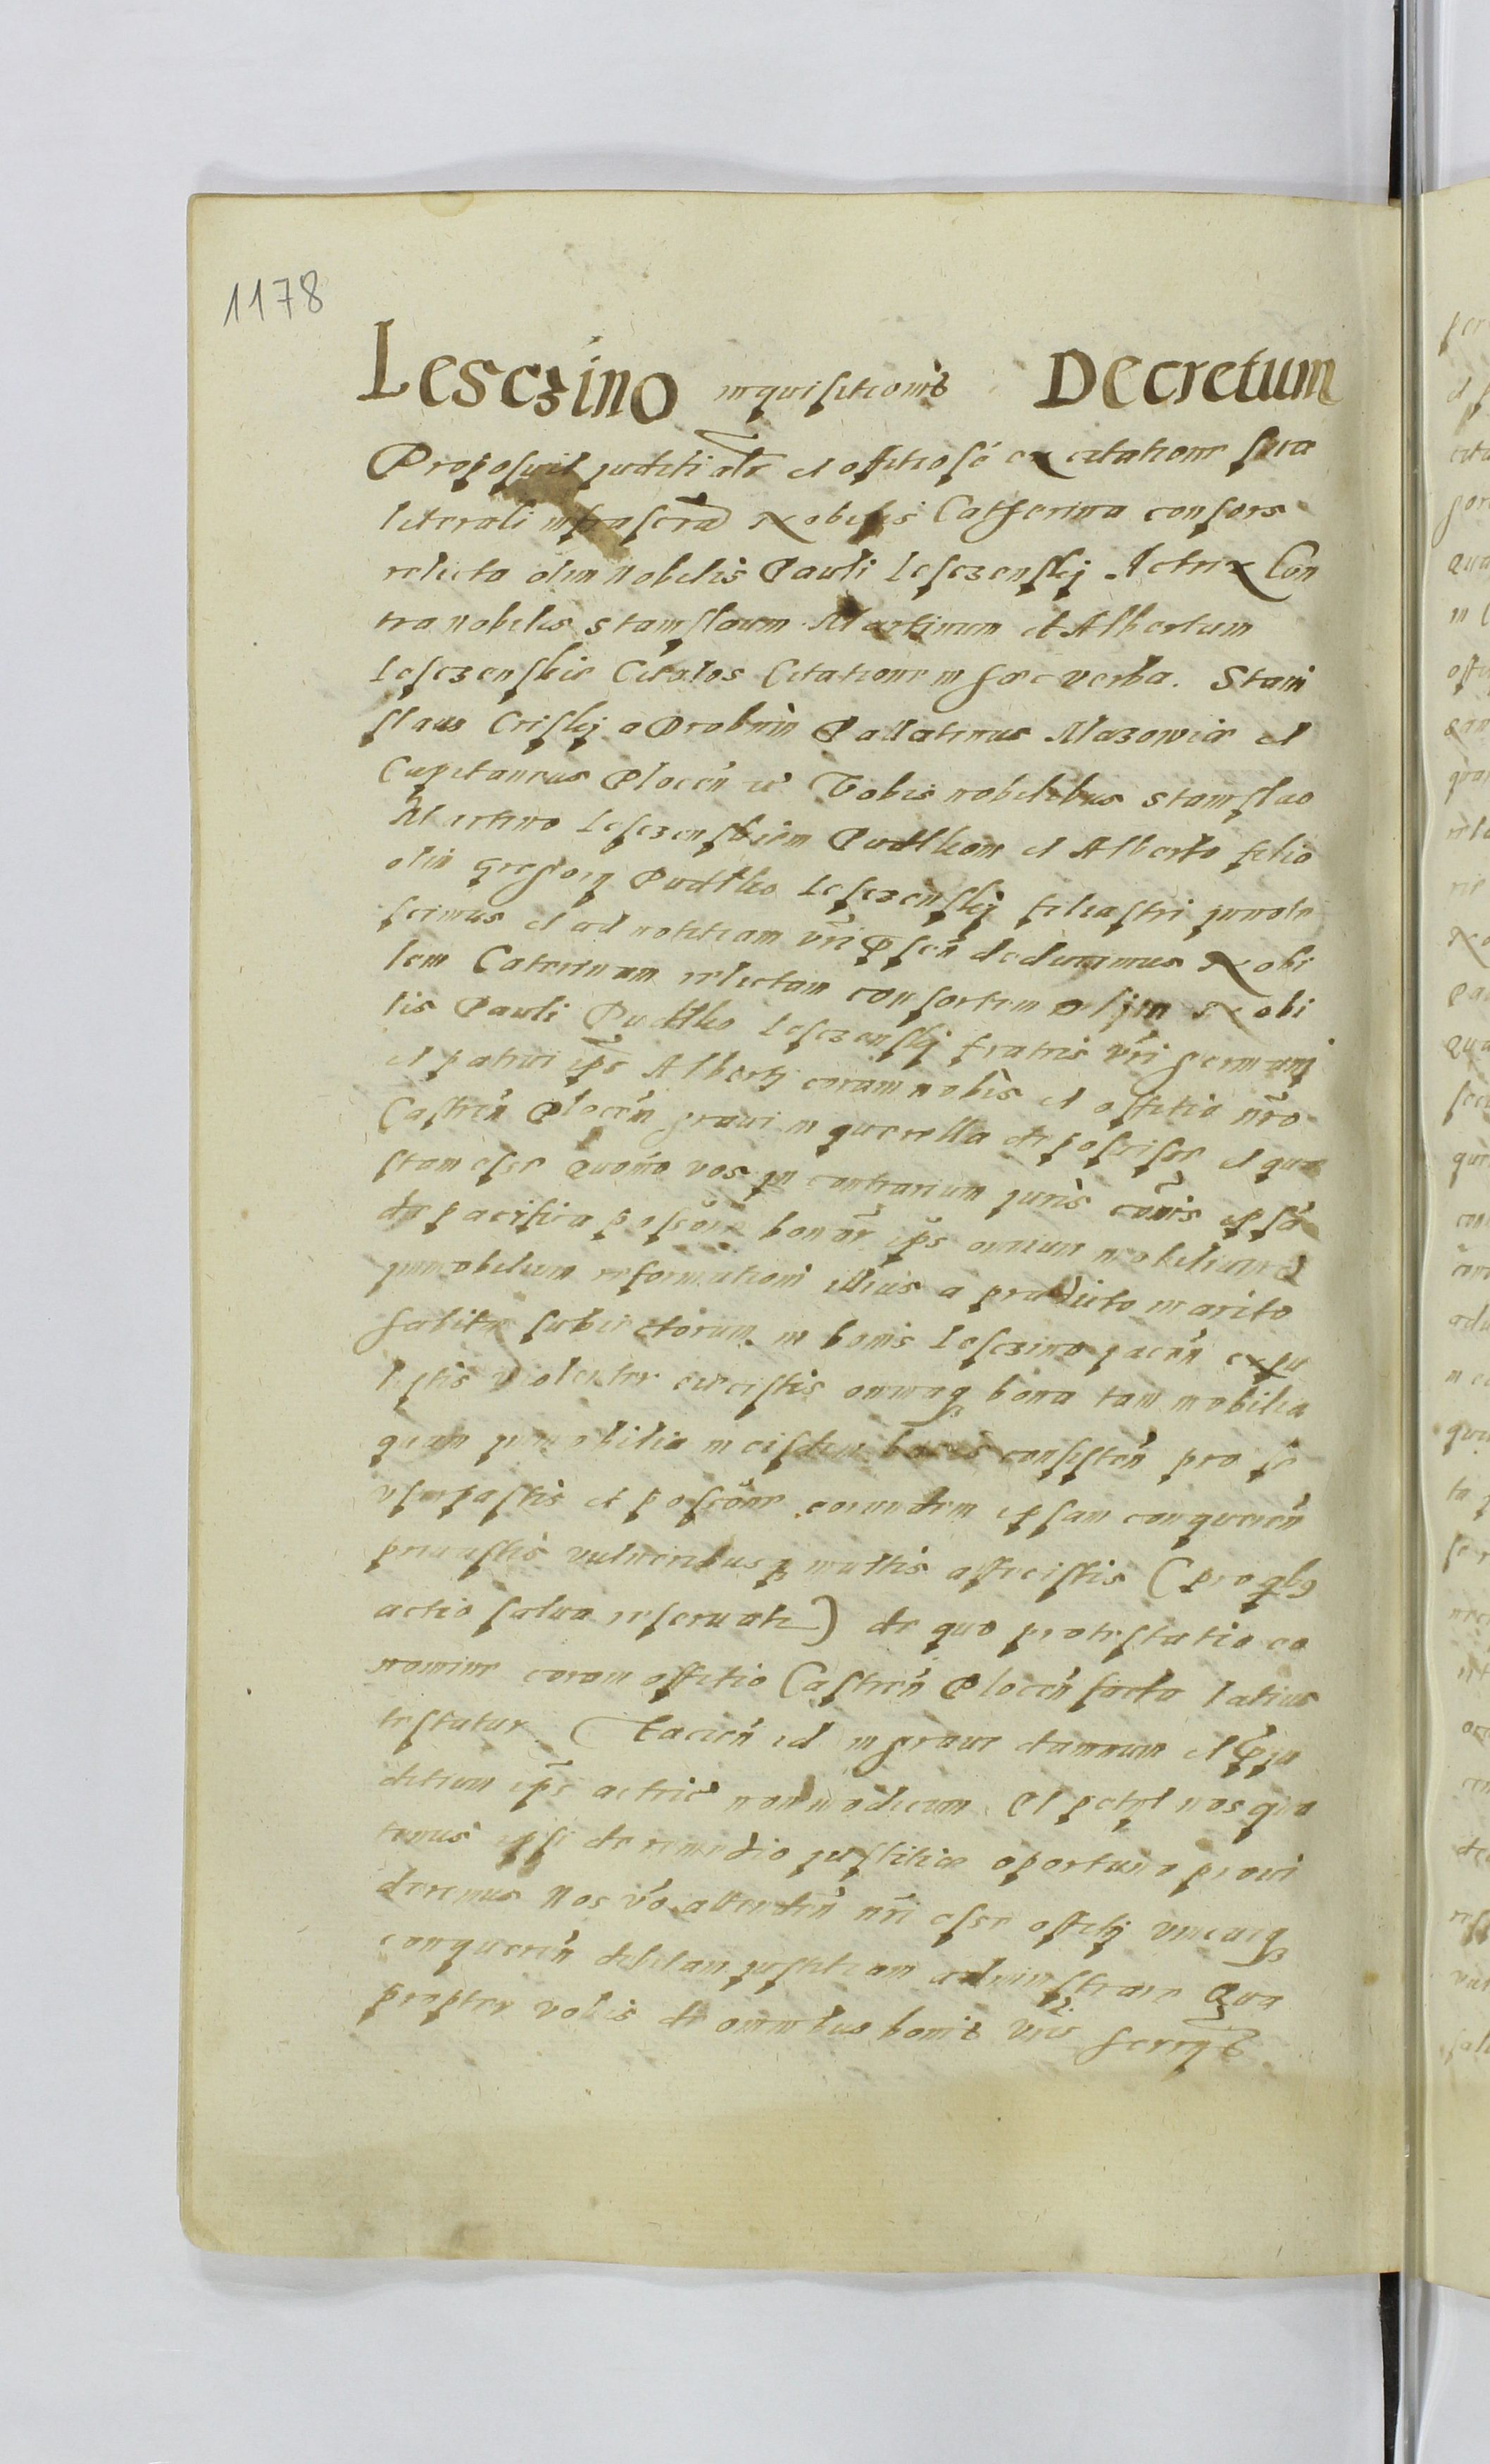 1178
Lesczino inquisitionis Decretum
Proposuit juditialr et offitiosé ex citatione sua
literali infrascra Nobilis Catherina consors
relicta olim Nobilis Pauli Lesczenskij Actrix Con
tra nobiles Stanislaum Martinum et Albertum
Lesczenskie Citatos Citatione in haec verba. Stani
slaus Criskij a Drobnin Pallatinus Mazowiae et
Capitaneus Plocen̄ ec̄ Vobis nobilibus Stanislao
Martino Lesczenskiem Pudlkom et Alberto filio
olim Gregorij Pudlko Lesczenskij filiastri jnnote
scimus et ad notitiam vr̄i pn̄sen̄ deducimus Nobi
lem Caterinam relictam consortem olim Nobi
lis Pauli Pudlko Lesczenskij fratris vr̄i germanj
et patrui ip̄s Albertj coram nobis et offitio nr̄o
Castren̄ Plocen̄ gravi in querella deposuisse et que
stam esse Quomō vos jn contrarium juris cōis ipsā
de pacifica possōne bonor̄ ip̄s omnium mobilium et
jmmobilium reformationi illius a praedicto marito
habitae subiectorum in bonis Lesczino jacen̄ expu
listis violenter eiecistis omniaq₃ bona tam mobilia
quam jmmobilia in eisdem bonis consisten̄ pro se
usurpastis et possōne eorundem ipsam conqueren̄
privastis vulneribusq₃ multis affecistis (Pro qb9
actio salva reservatr) de quo protestatio eo
nomine coram offitio Castren̄ Plocen̄ facta latius
testatur Facien̄ id in grave damnum et Prju
ditium ip̄s actric̄ non modicum Et petijt nos qua
tenus ipsi de remedio justitiae oportuno provi
deremus Nos v̄o atten​den̄ nr̄i esse offitij unicuiq₃
conqueren̄ debitam justitiam administrare Qua
propter vobis de omnibus bonis vr̄is